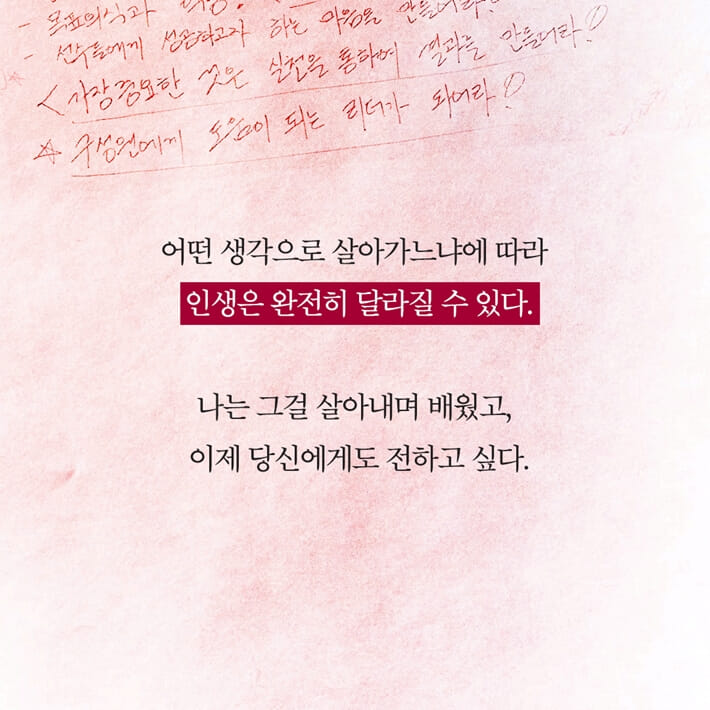 - 목표의식과
- 선수들에게 성공하고자 하는 마음을 만들어라
<가장 중요한 것은 실전을 통하여 결과를 만들어라!
☆ 구성원에게 도움이 되는 리더가 되어라!
어떤 생각으로 살아가느냐에 따라
인생은 완전히 달라질 수 있다.
나는 그걸 살아내며 배웠고,
이제 당신에게도 전하고 싶다.